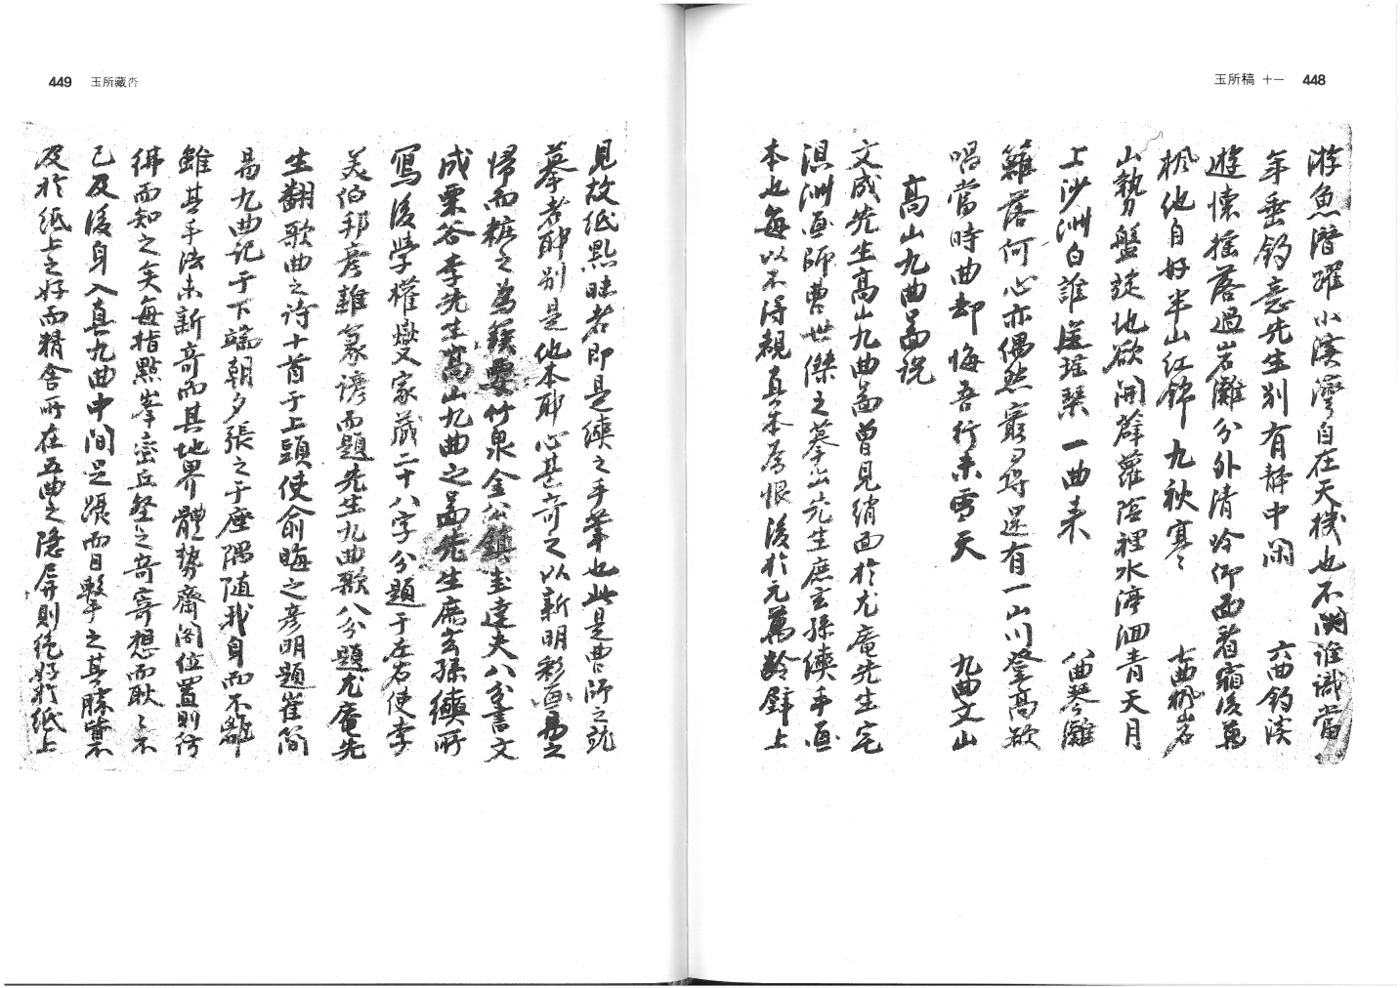 玉所稿 十一 448
游魚潛躍小溪灣自在天機也不関誰識當
年垂釣意先生別有静中闲 六曲釣溪
遊懷搖落過岩灘分外清吟仰面看須後萬
楓他自好半山红錦九秋寒 七曲楓岩
山勢盤旋地欲開薜蘿陰裡水濟洄青天月
上沙洲白誰選瑤琴一曲来 八曲琴灘
籬落何心亦偶然窮尋還有一山川登高欲
唱當時曲却悔吾行未雪天 九曲文山
高山九曲啚説
文成先生高山九曲啚曾見绡面於尤庵先生宅
浿洲画師曹世傑之摹出先生庶玄孫續手画
本也每以不得親真本為恨後於元萬齡壁上
449 玉所藏呇
見故紙點昧者即是續之手筆也此是曹師之所
摹者耶别是他本耶心甚奇之以新明彩画易之
帰而粧之為簇要竹泉金公鎮圭達夫八分書文
成栗谷李先生高山九曲之啚先生庶玄孫續所
寫後學權燮文家藏二十八字分題于左右使李
美伯邦彦雜篆謗而題先生九曲歌八分題尤庵先
生翻歌曲之诗十首于上頭使俞晦之彦明題崔简
易九曲记于下端朝夕張之于座隅随我身而不離
雖其手法未新奇而其地界體势齋阁位置則彷
彿而知之矣每指點峯巒丘壑之奇寄想而耿々不
已及後身入真九曲中间足躡而目擊之其勝皆不
及於紙上之好而精舍所在五曲之隱屏則绝好於纸上